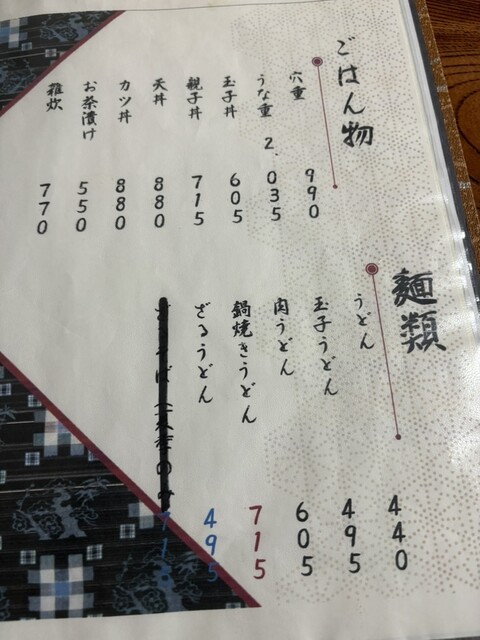 ごはん物
穴重 990
うな重 2,035
玉子丼 605
親子丼 715
天丼 880
カツ丼 880
お茶漬け 550
雑炊 770
麺類
うどん 440
玉子うどん 495
肉うどん 605
鍋焼きうどん 715
ざるうどん 495